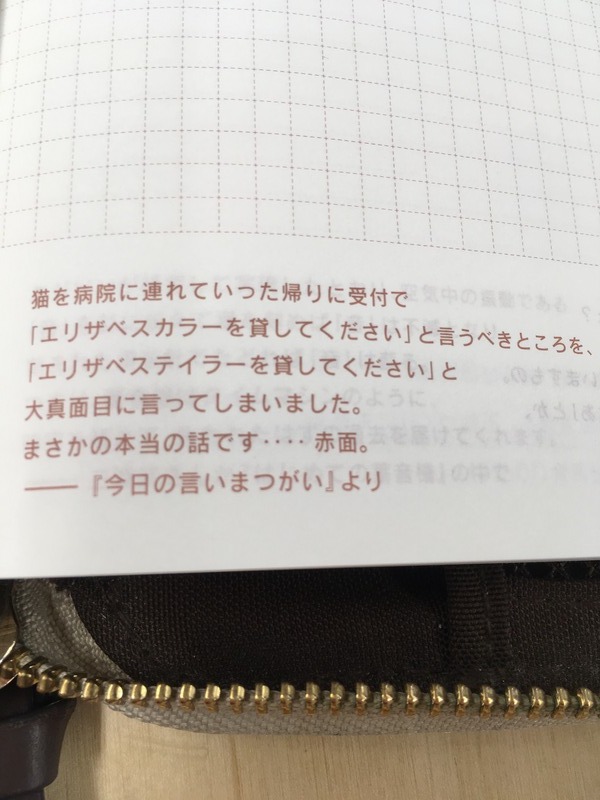 猫を病院に連れていった帰りに受付で
「エリザベスカラーを貸してください」と言うべきところを、
「エリザベステイラーを貸してください」と
大真面目に言ってしまいました。
まさかの本当の話です‥‥赤面。
——『今日の言いまつがい』より